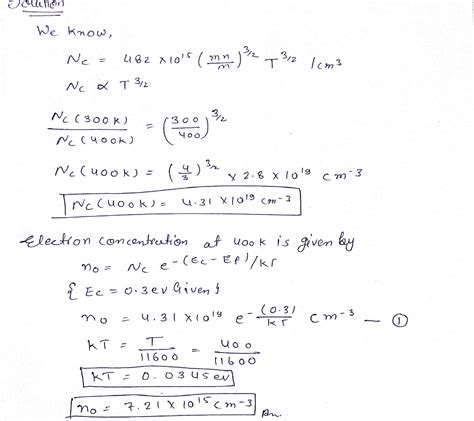 Solution
We know,
Nc = 482 x10¹⁵ (mn/m)^3/2 T^3/2 /cm³
Nc ∝ T^3/2
Nc(300k)/Nc(400k) = (300/400)^3/2
Nc(400k) = (4/3)^3/2 x 2.8 x 10¹⁹ cm-3
Nc(400k) = 4.31 x10¹⁹ cm-3
Electron concentration at 400k is given by
no = Nc e-(Ec-Ef)/kT
{ Ec = 0.3ev Given}
no = 4.31 x10¹⁹ e-(0.3)/kT cm-3 — ①
KT = T/11600 = 400/11600
KT = 0.0345ev
no = 7.21 x 10¹⁵ cm-3 An.